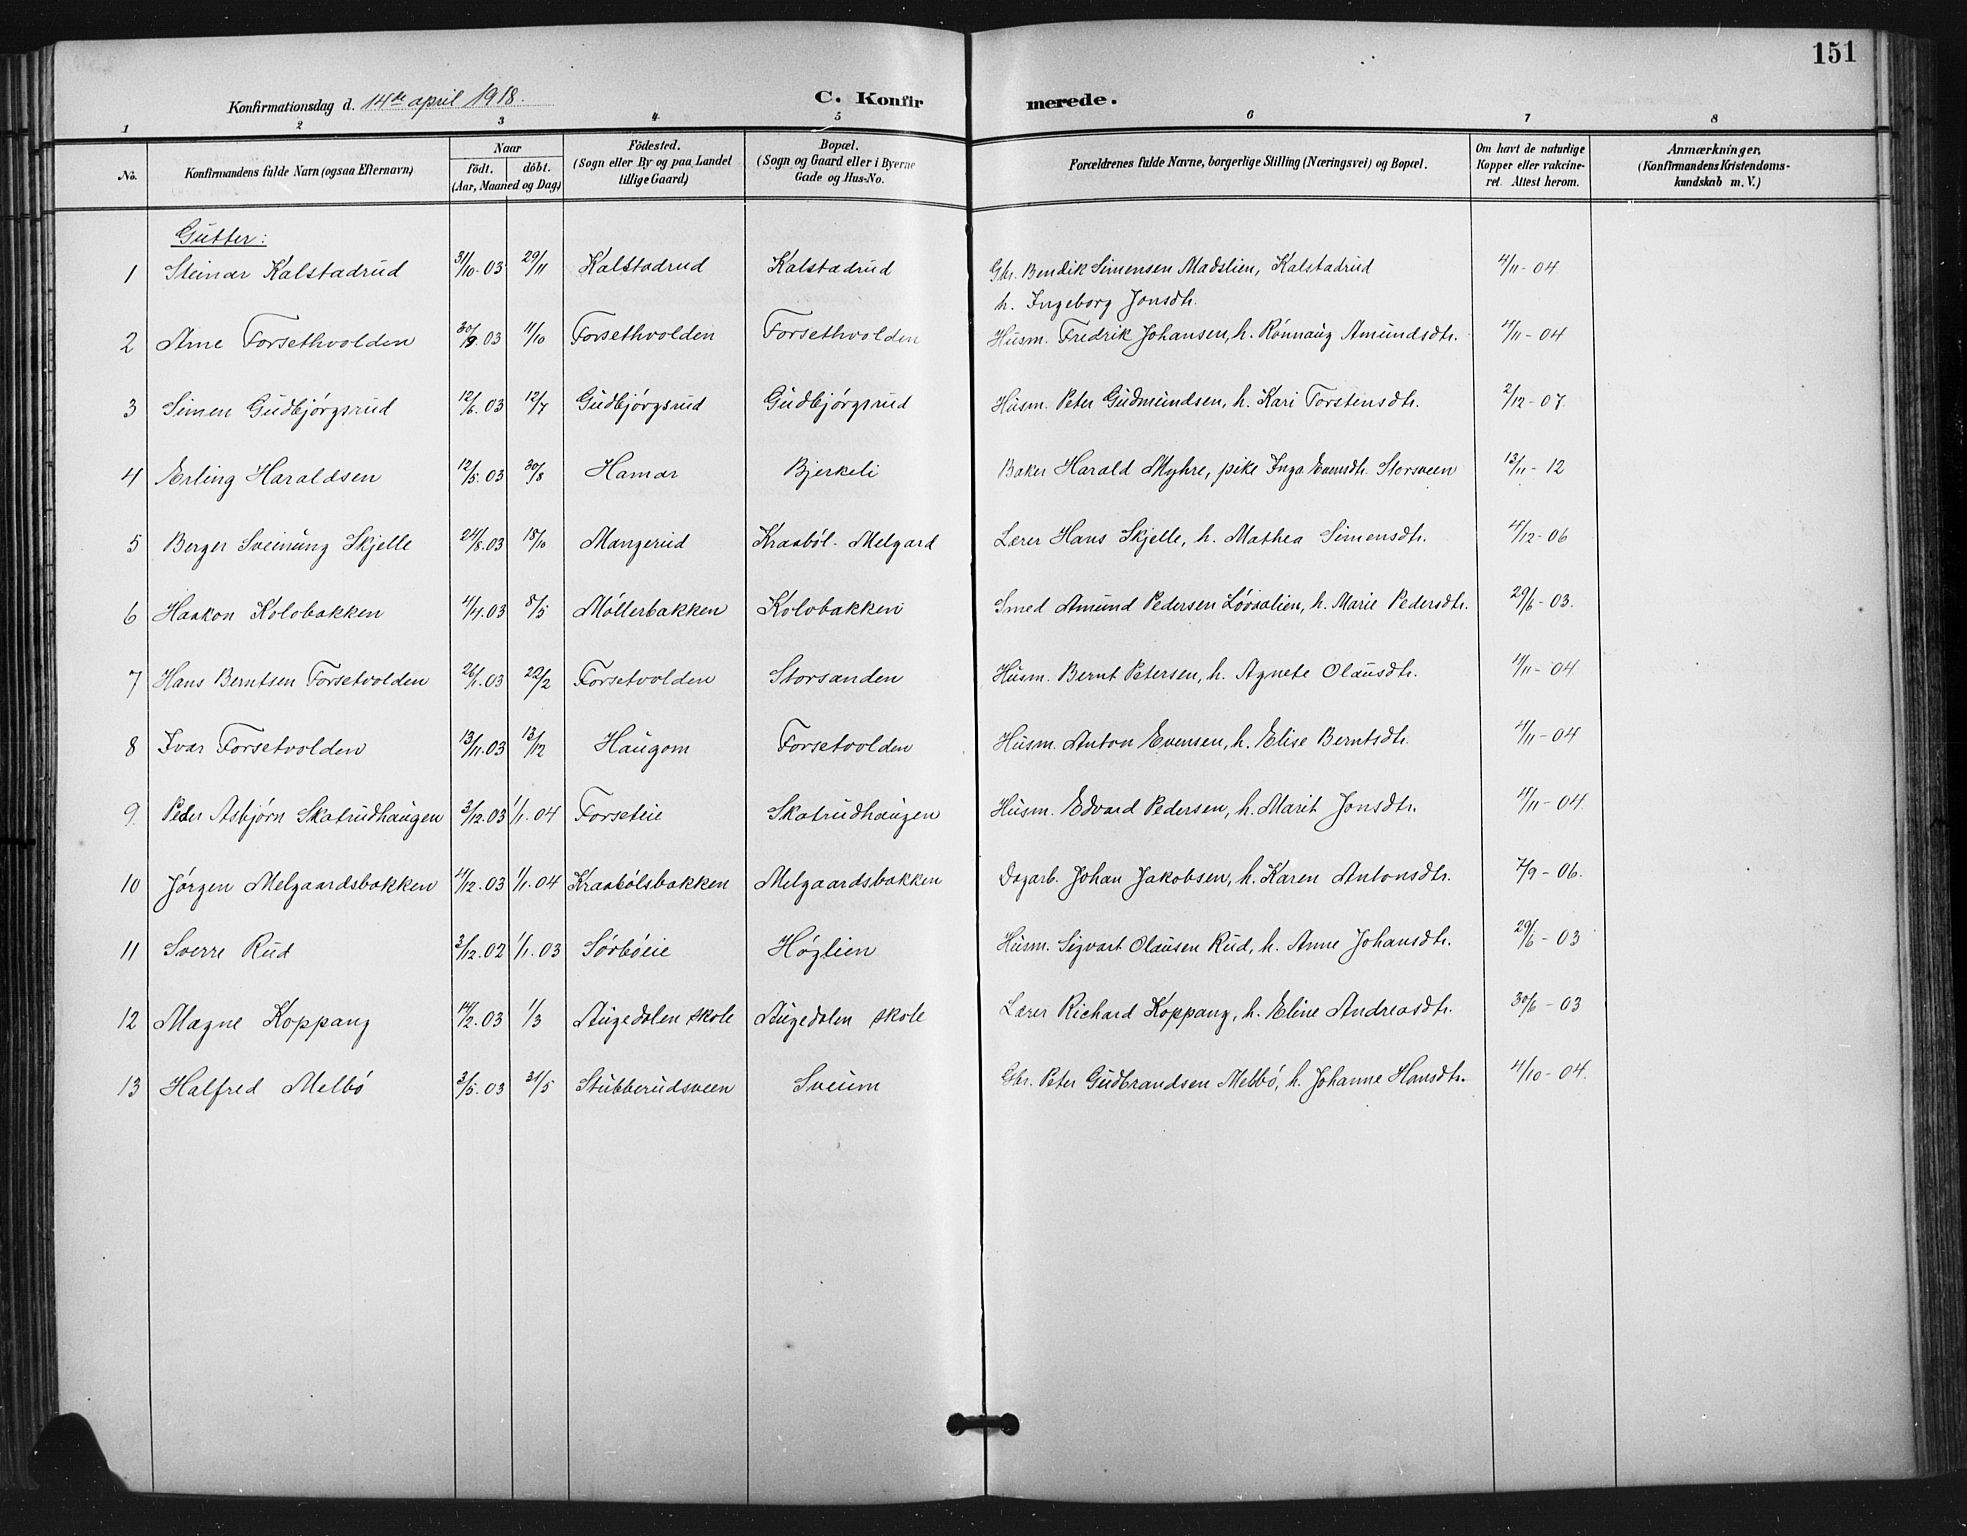 151
Konfirmationsdag d. 14de april 1918. C. Konfirmerede.
1 2 3 4 5 6 7 8
No. Konfirmandens fulde Navn (ogsaa Efternavn) Naar födt. döbt. (Aar, Maaned og Dag) Födested. (Sogn eller By og paa Landet tillige Gaard) Bopæl. (Sogn og Gaard eller i Byerne Gade og Hus-No. Forældrenes fulde Navne, borgerlige Stilling (Næringsvei) og Bopæl. Om havt de naturlige Kopper eller vakcineret. Attest herom. Anmærkninger, (Konfirmandens Kristendomskundskab m. V.)
Gutter:
1 Steinar Kalstadrud 31/10.03 29/11 Kalstadrud Kalstadrud Gbr. Bendik Simensen Madslien, Kalstadrud 4/11-04
h. Ingeborg Jonsdtr.
2 Arne Forsethvolden 30/9.03 11/10 Forsethvolden Forsethvolden Husm. Fredrik Johansen, h. Rønnaug Amundsdtr. 4/11-04
3 Simen Gudbjørgsrud 12/6.03 12/7 Gudbjørgsrud Gudbjørgsrud Husm. Peter Gudmundsen, h. Kari Torstensdtr. 2/12-07
4 Erling Haraldsen 12/5.03 30/8 Hamar Bjerkeli Baker Harald Myhre, pike Inga Evensdtr. Storsveen 13/11-12
5 Berger Sveinung Skjelle 24/8.03 18/10 Mangerud Kraabøl-Melgard Lærer Hans Skjelle, h. Mathea Simensdtr. 4/12-06
6 Haakon Kolobakken 4/4.03 8/5 Møllerbakken Kolobakken Smed Amund Pedersen Løvsalien, h. Marie Pedersdtr. 29/6-03.
7 Hans Berntsen Forsetvolden 26/1.03 22/2 Forsetvolden Storsanden Husm. Bernt Petersen, h. Agnete Olausdtr. 4/11-04
8 Ivar Forsetvolden 13/11.03 13/12 Haugom Forsetvolden Husm. Anton Evensen, h. Elise Berntsdtr. 4/11-04
9. Peder Asbjørn Skatrudhaugen 3/12.03 1/1.04 Forseteie Skatrudhaugen Husm. Edvard Pedersen, h. Marit Jonsdtr. 4/11-04.
10 Jørgen Melgaardsbakken 4/12.03 1/1.04 Kraabølsbakken Melgaardsbakken Dagarb. Johan Jakobsen, h. Karen Antonsdtr. 7/9-06.
11 Sverre Rud 3/12.02 1/1.03 Sørbøeie Høglien Husm. Sigvart Olausen Rud, h. Anne Johansdtr. 29/6-03
12 Magne Koppang 14/2.03 1/3 Augedalen skole Augedalen skole Lærer Richard Koppang, h. Eline Andreasdtr. 30/6-03
13 Halfred Melbø 3/5.03 31/5 Stubberudsveen Sveum Gbr. Peter Gudbrandsen Melbø, h. Johanne Hansdtr. 4/10-04.